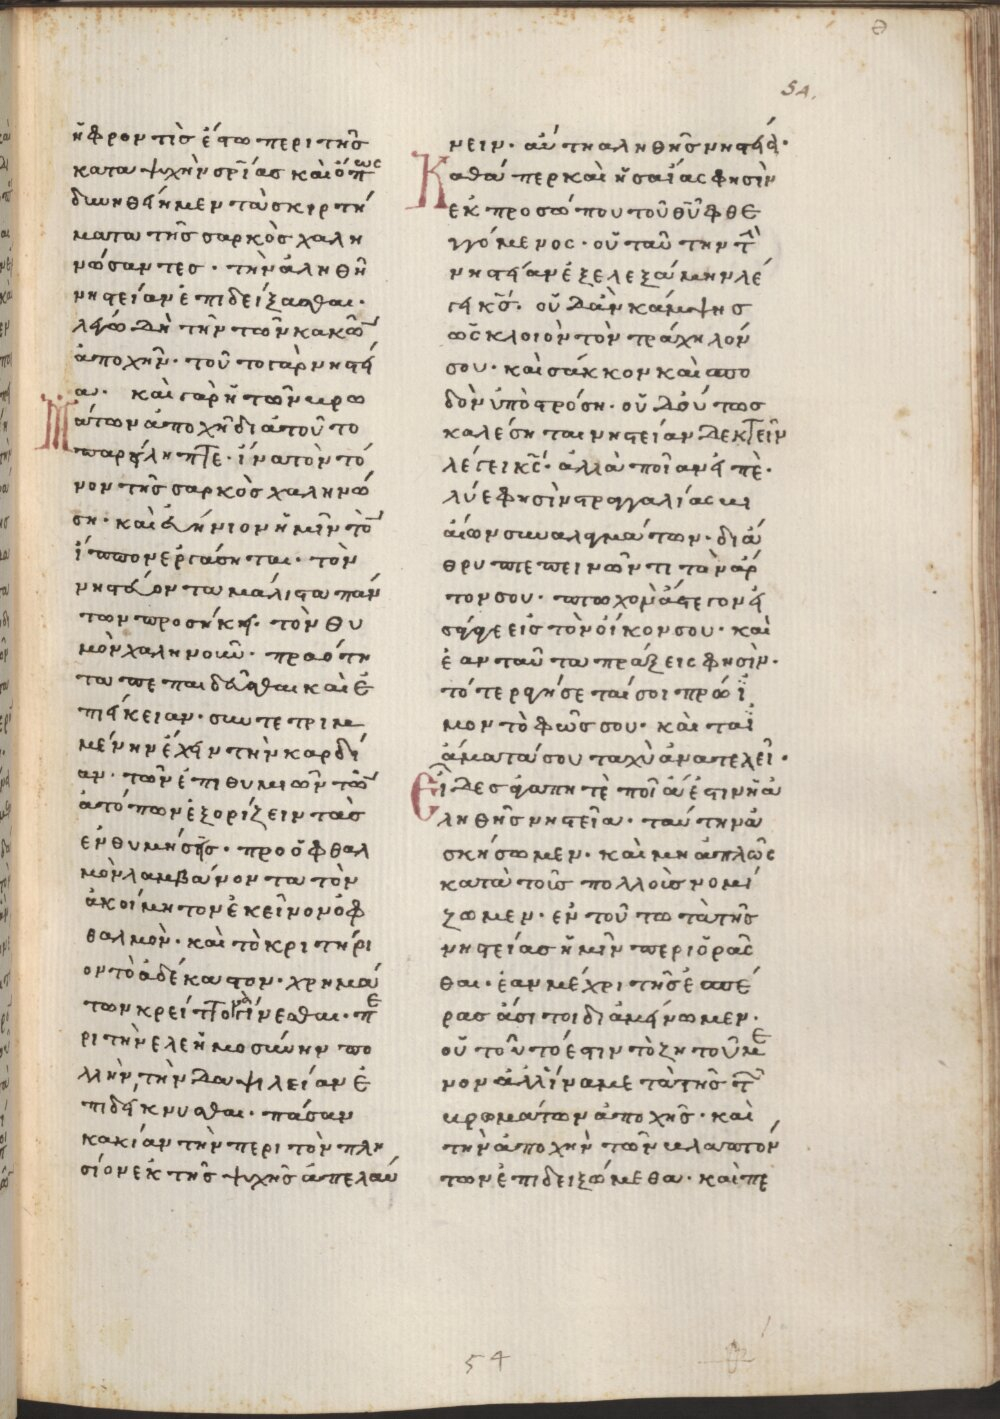 θ
54.
ἡ φροντὶς ἔστω περι τῆς
κατα ψυχὴν σρίας καὶ ὅπως
δυνηθείημεν τὰ σκιρτή
ματα τῆς σαρκὸς χαλι
νώσαντες · τὴν ἀληθῆ
νηστείαν ἐπιδείξασθαι ·
λέγω δὴ τὴν τῶν κακῶν
ἀποχήν · τοῦτο γὰρ νηστεί
α · καὶ γὰρ ἡ τῶν βρω
μάτων ἀποχὴ διὰ τοῦτο
παρείληπται · ἵνα τὸν τό
νον τῆς σαρκὸς χαλινώ
ση · καὶ εὐήνιον ἡμῖν τὸν
ἵππον ἐργάσηται · τὸν
νηστεύοντα μάλιστα πάν
των προσήκει · τὸν θυ
μὸν χαλινοῦν · πραότη
τα πεπαιδεῦσθαι καὶ ἐ
πιείκειαν · συντετριμ
μένην ἔχειν τὴν καρδί
αν · τῶν ἐπιθυμιῶν τῶν
ἀτόπων ἐξορίζειν τὰς
ἐνθυμήσεις · προ ὀφθαλ
μὸν λαμβάνοντα τὸν
ἀκοίμητον ἐκεῖνον ὀφ
θαλμὸν · καὶ τὸ κριτήρι
ον τὸ ἀδέκαστον · χρημά
των κρείττονα γίνεσθαι · πε
ρι τὴν ἐλεημοσύνην πο
λλὴν τὴν δαψιλείαν ἐ
πιδείκνυσθαι · πάσαν
κακίαν τὴν περι τὸν πλη
σίον ἐκ τῆς ψυχῆς ἀπελαύ
νειν · αὕτη ἀληθὴς νηστεία ·
Καθάπερ καὶ ἡσαΐας φησὶν
ἐκ προσώπου τοῦ θῦ φθε
γγόμενος · οὐ ταύτην τὴν
νηστείαν ἐξελεξάμην λέ
γει κς̄ · οὐδ' ἂν κάμψης
ὡς κλοιὸν τὸν τράχηλόν
σου · καὶ σάκκον καὶ σπο
δὸν ὑποστρώση · οὐδ' οὕτως
καλέσηται νηστείαν δεκτὴν
λέγει κς̄ · ἀλλὰ ποίαν εἰπὲ ·
λύε φησὶν στραγγαλίας βι
αίων συναλαγμάτων · διά
θρυπτε πεινῶντι τὸν ἄρ
τον σου · πτωχὸν ἄστεγον εἰ
σάγαγε εἰς τὸν οἶκον σου · καὶ
ἐὰν ταῦτα πράξεις φησὶν ·
τότε ραγήσεταί σοι πρώϊ
μον τὸ φῶς σου · καὶ τὰ ἰ
άματά σου ταχὺ ἀνατελεῖ ·
Εἶδες ἀγαπητὲ ποία ἐστιν ἡ ἀ
ληθὴς νηστεία · ταύτην ἀ
σκήσωμεν · καὶ μὴ ἁπλῶς
κατὰ τοὺς πολλοὺς νομί
ζωμεν · ἐν τούτω τὰ τῆς
νηστείας ἡμῖν περιορᾶς
θαι · ἐὰν μέχρι τῆς ἑσπέ
ρας ἄσιτοι διαμείνωμεν ·
οὐ τοῦτό ἐστιν τὸ ζητούμε
νον ἀλλ' ἵνα μετὰ τῆς τῶν
βρωμάτων ἀποχῆς · καὶ
τὴν ἀποχὴν τῶν βλαπτόν
των ἐπιδειξώμεθα · καὶ πε
54